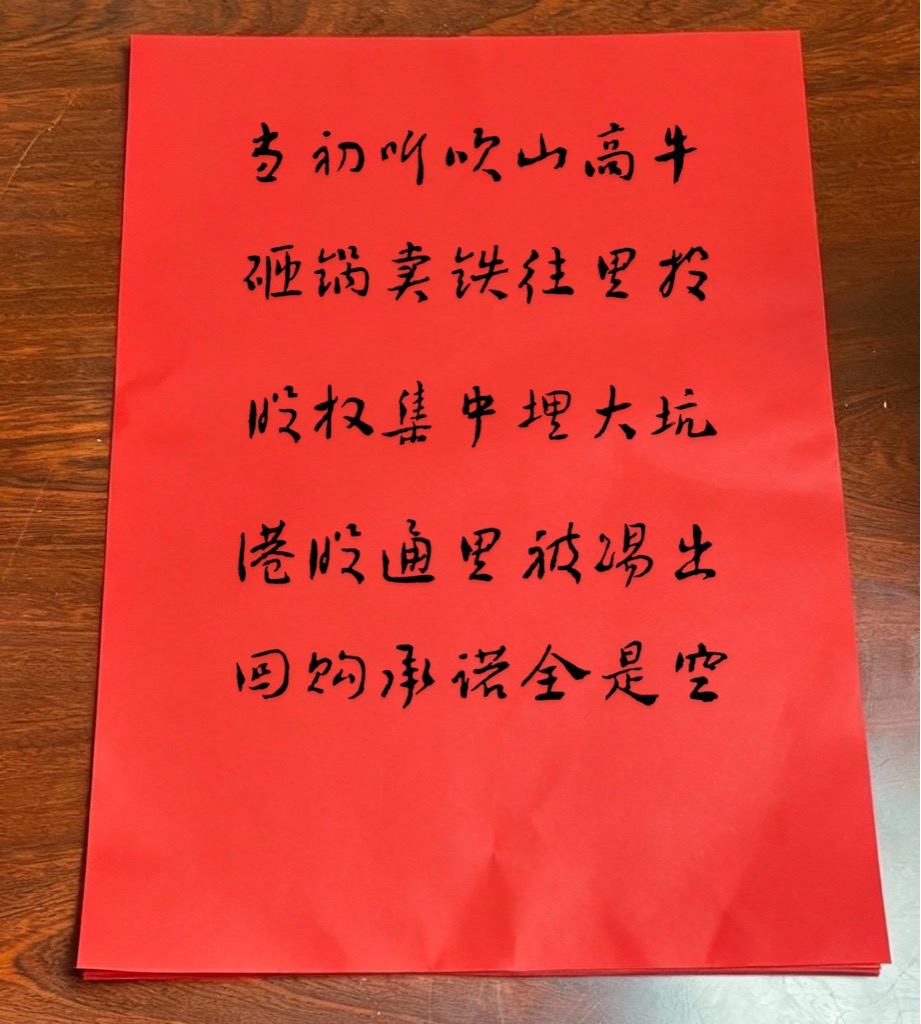 当初听吹山高牛
砸锅卖铁往里投
股权集中埋大坑
港股通里被踢出
回购承诺全是空